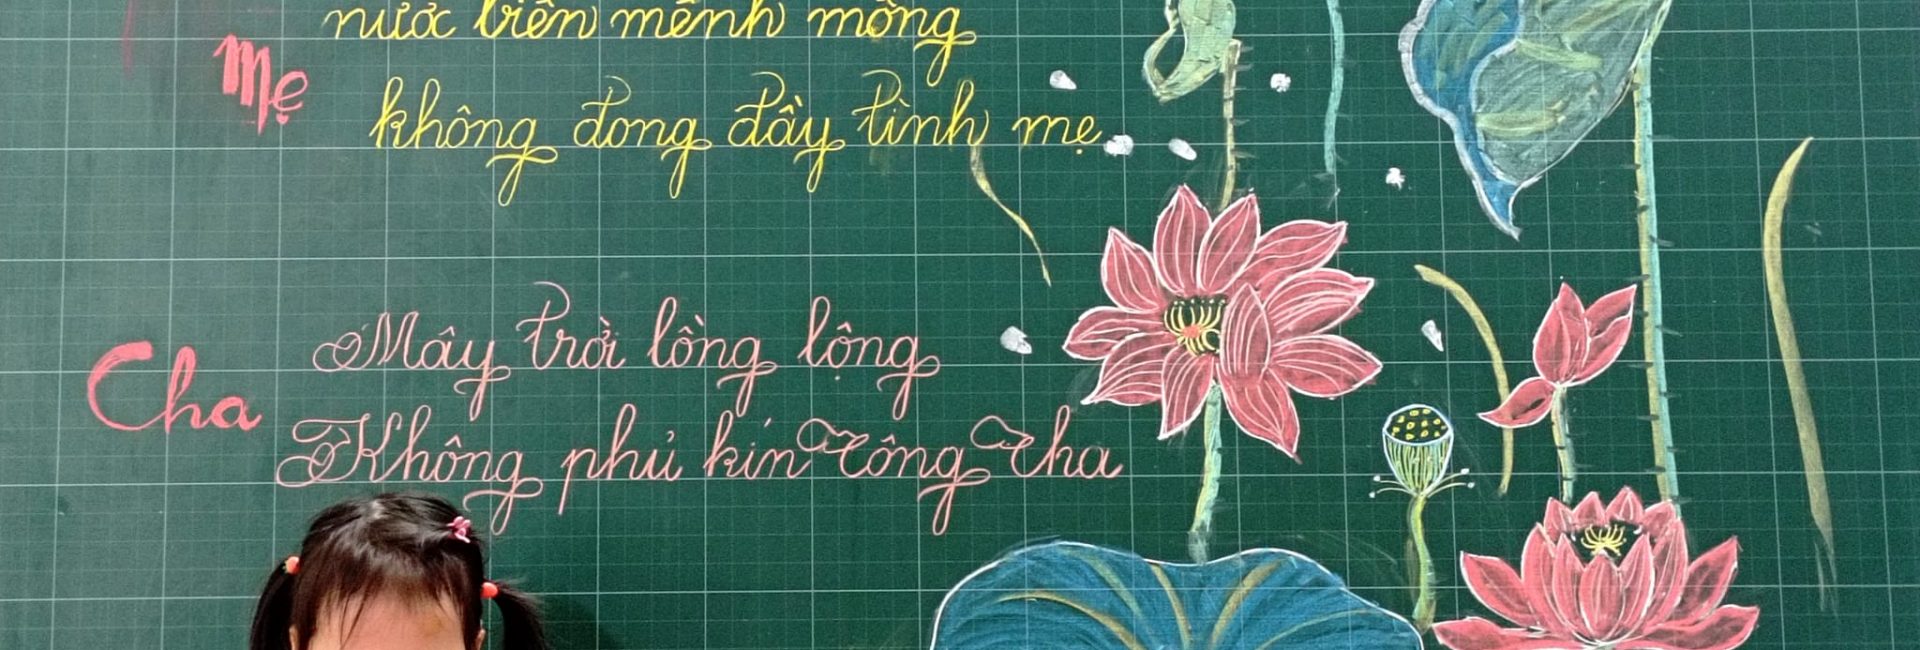 nước biển mênh mông
Mẹ
không đong đầy tình mẹ
Mây trời lồng lộng
Cha
Không phủ kín công cha